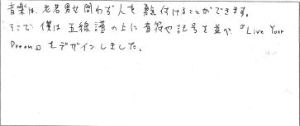 音楽は、老若男女問わず人を魅き付けることができます。
そこで僕は五線譜の上に音符や記号を並べ『Live Your
Dream』をデザインしました。